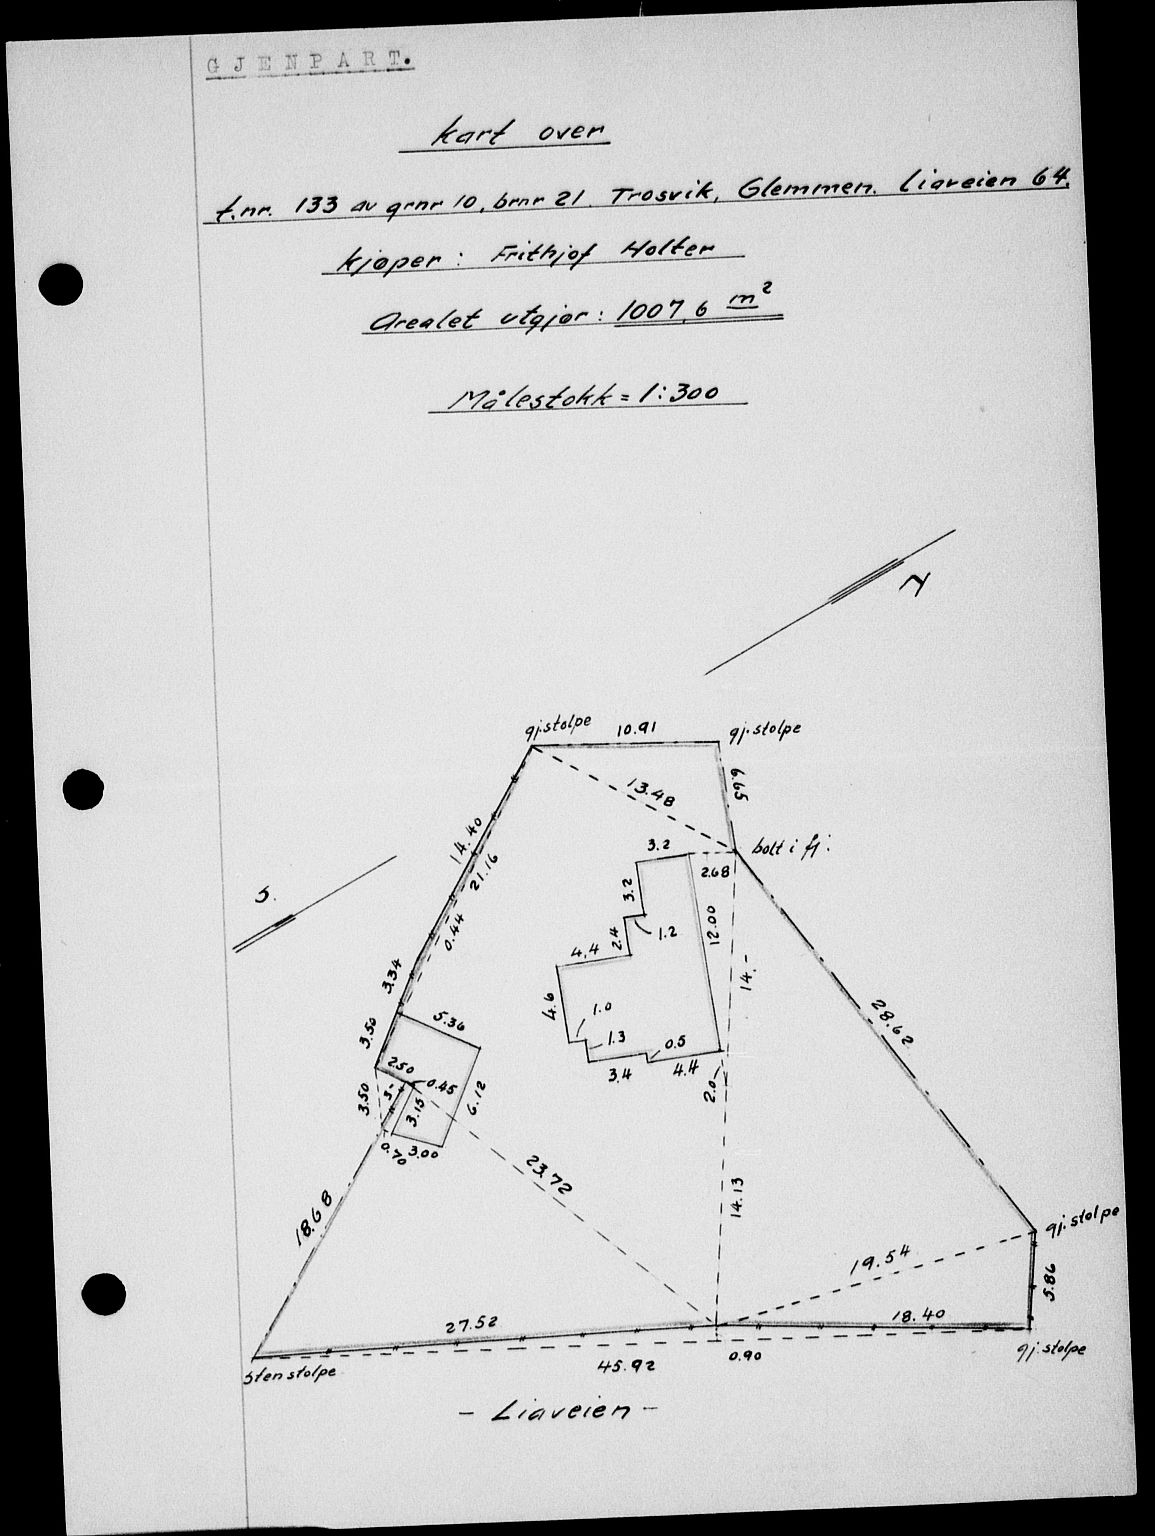 GJENPART.
kart over
t.nr. 133 av grnr 10, brnr 21. Trosvik, Glemmen. Liaveien 64.
kjøper: Frithjof Holter
Arealet utgjør: 1007,6 m²
Målestokk = 1:300
N
gj.stolpe
10.91
gj.stolpe
6.65
13.48
14.40
21.16
3.2
bolt i fj.
2.68
S.
3.2
1.2
12.00
0.44
2.4
4.4
3.34
14.-
4.6
1.0
28.62
3.50
5.36
1.3
0.5
3.4
4.4
2.50
3.50
3.-
0.45
6.12
2.0
3.15
0.70
3.00
23.72
14.13
18.68
gj.stolpe
19.54
5.86
27.52
18.40
Sten stolpe
45.92
0.90
gj.stolpe
- Liaveien -